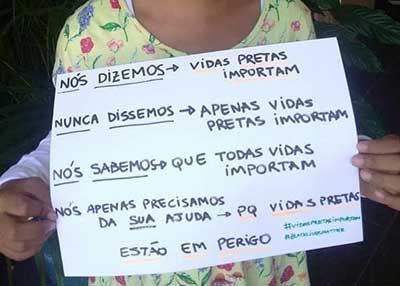 NÓS DIZEMOS → VIDAS PRETAS
IMPORTAM
NUNCA DISSEMOS → APENAS VIDAS
PRETAS IMPORTAM
NÓS SABEMOS → QUE TODAS VIDAS
IMPORTAM
NÓS APENAS PRECISAMOS
DA SUA AJUDA → PQ VIDAS PRETAS
#VIDASPRETASIMPORTAM
#BLACKLIVESMATTER
ESTÃO EM PERIGO